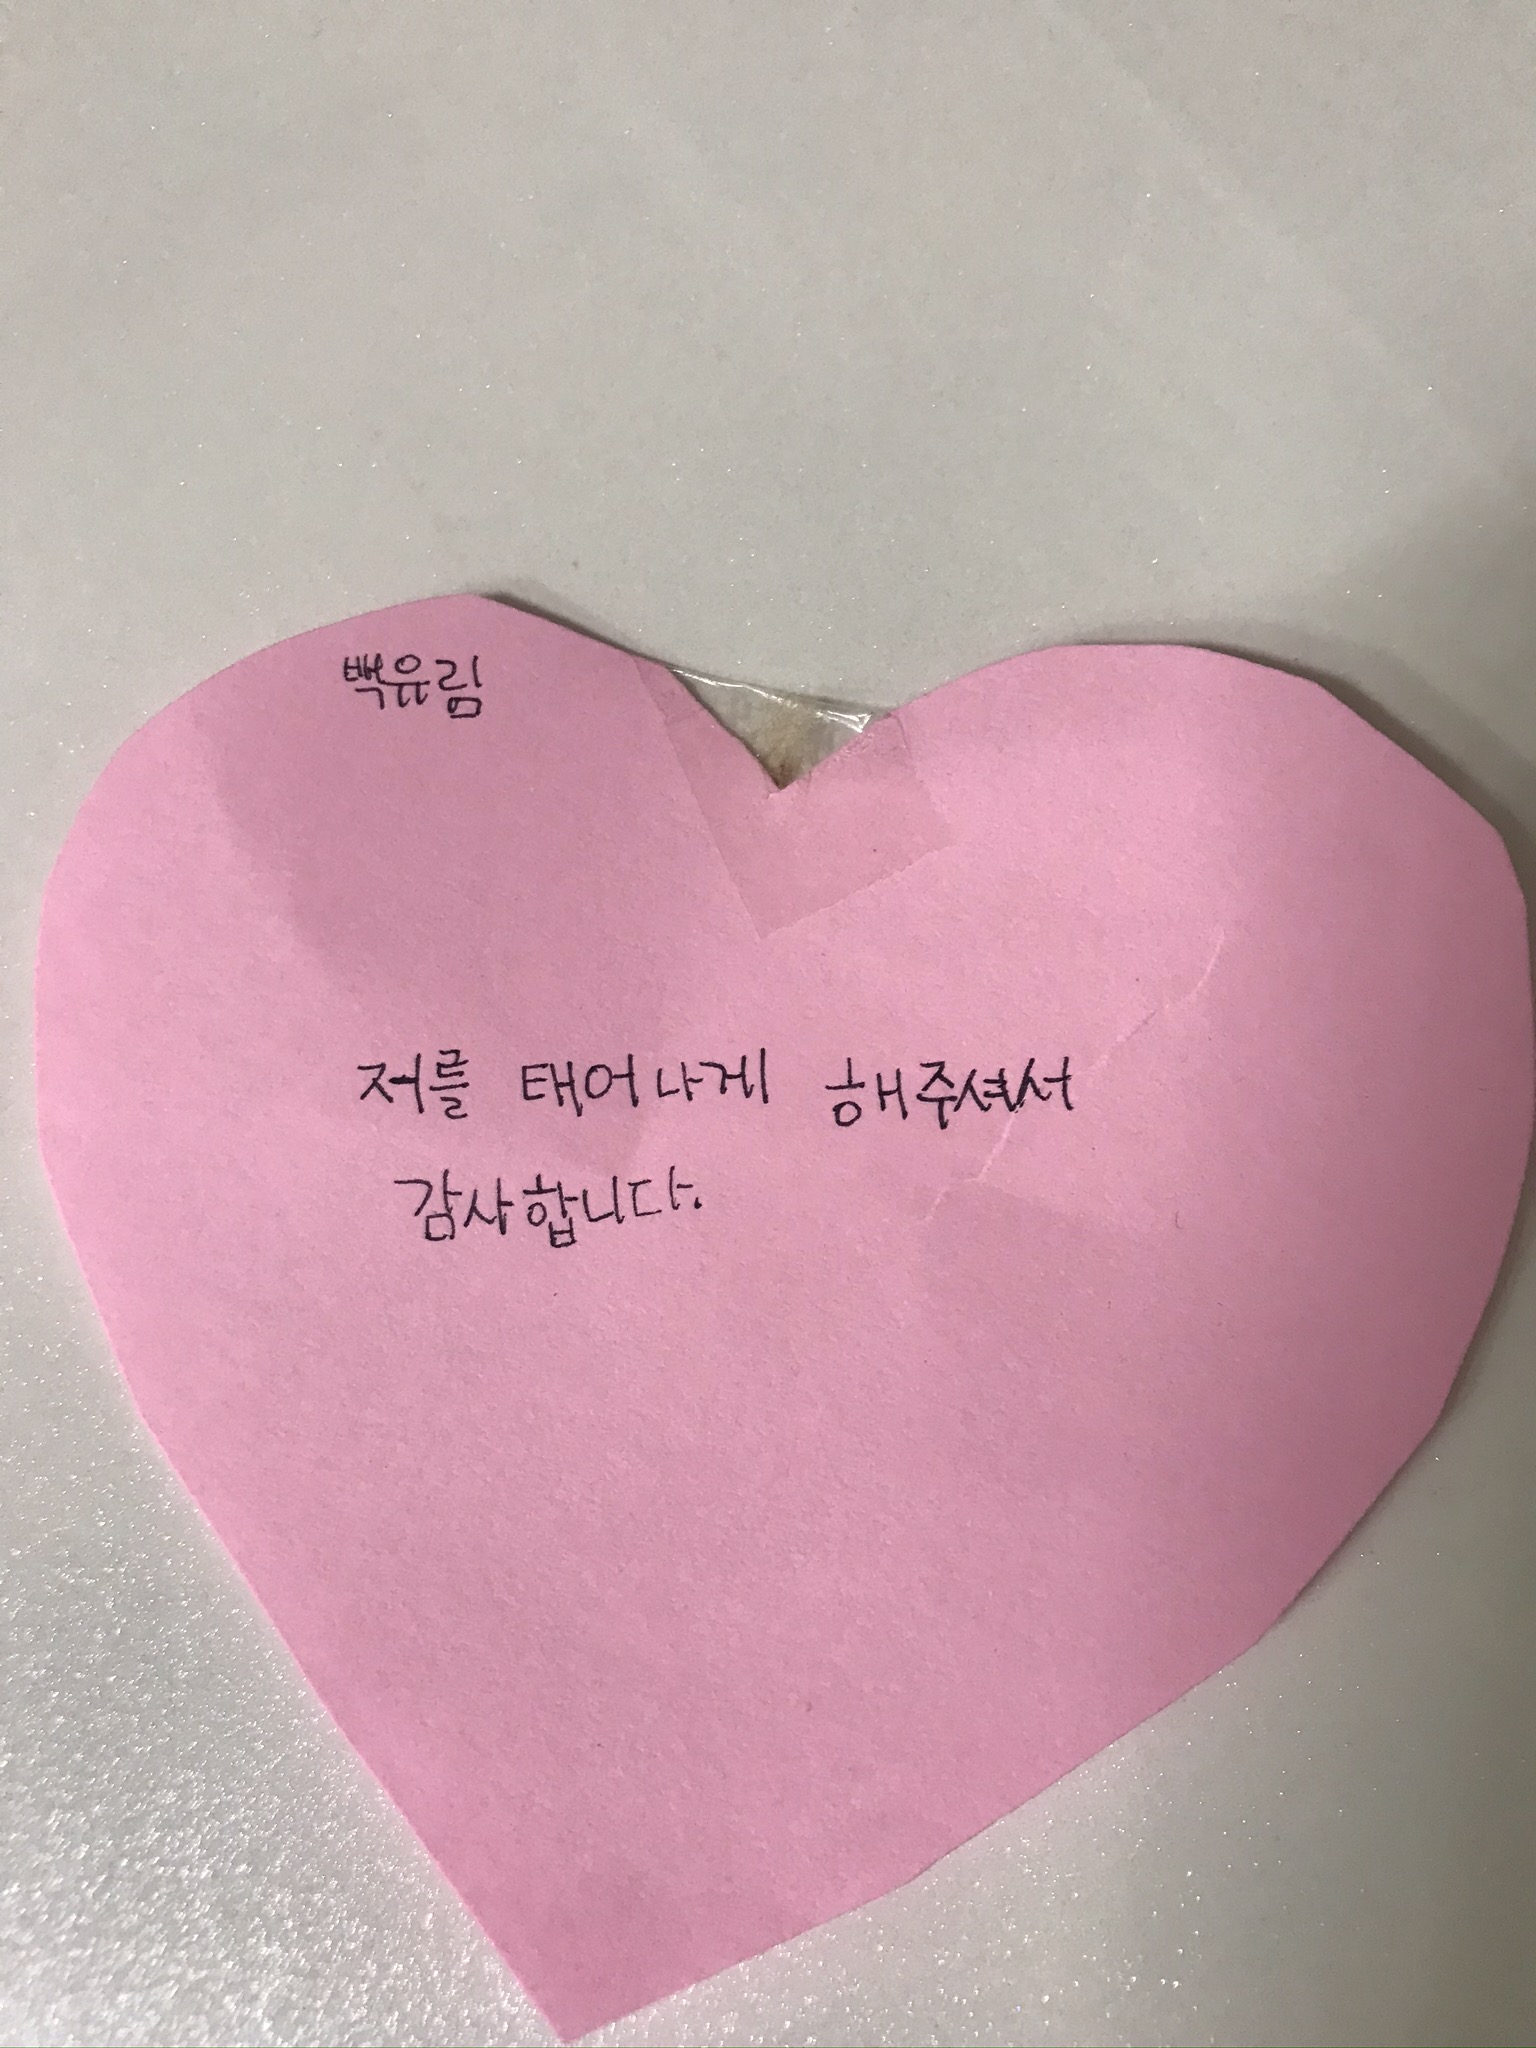 백유림
저를 태어나게 해주셔서
감사합니다.